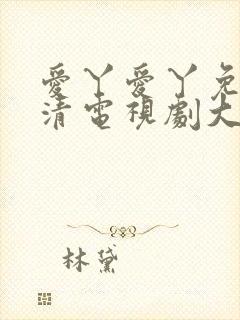 愛丫愛丫免
清電視劇大
林黛